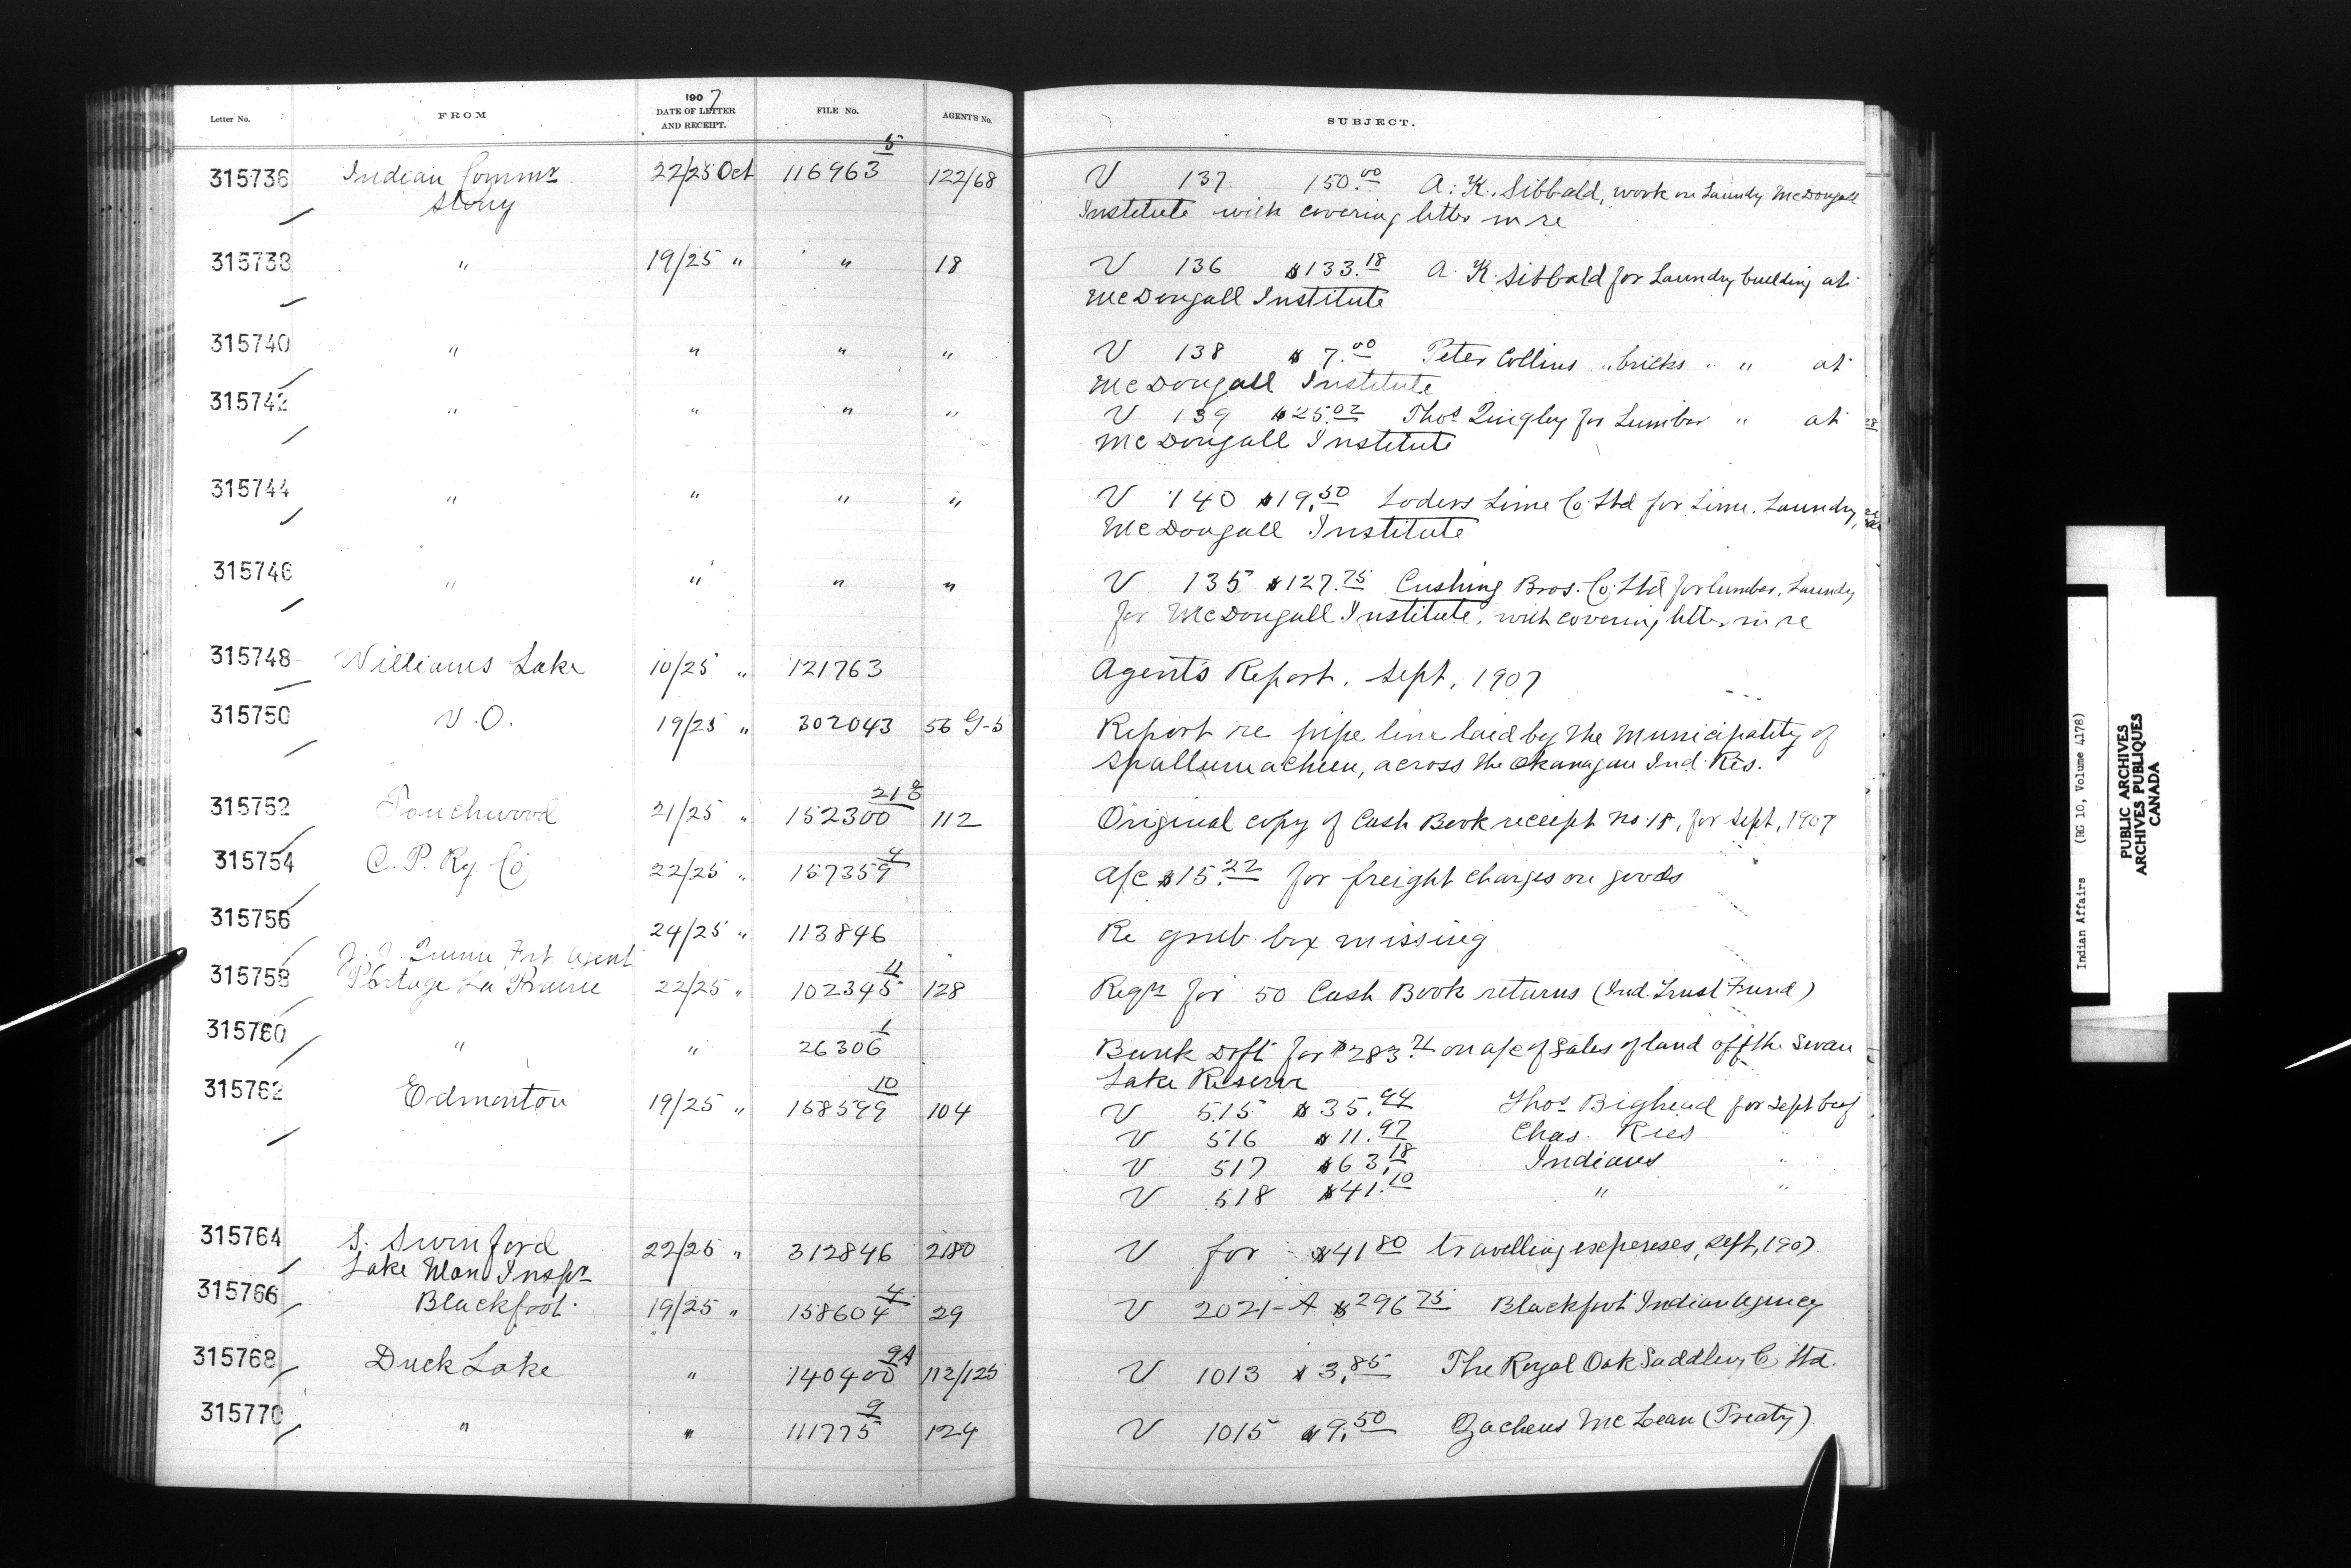 Letter No. FROM 1907 DATE OF LETTER AND RECEIPT. FILE No. AGENT'S No. SUBJECT.
315736 Indian Commr Stony 22/25 Oct 116963 5 122/68 V 137 150.00 A. K. Sibbald, work on Laundry McDougall
Institute with covering letter in re
315738 " 19/25 " " 18 V 136 $133.18 A. K. Sibbald for Laundry building at
McDougall Institute
315740 " " " " V 138 $7.00 Peter Collins " bricks " " at
McDougall Institute
315742 " " " " V 139 $25.02 Thos Quigley for Lumber " at
McDougall Institute
315744 " " " " V 140 $19.50 Loders Lime Co. Ltd for Lime. Laundry,
McDougall Institute
315746 " " " " V 135 $127.75 Cushing Bros. Co. Ltd for lumber, Laundry
for McDougall Institute, with covering letter in re
315748 Williams Lake 10/25 " 121763 Agent's Report, Sept, 1907
315750 V.O. 19/25 " 302043 56 G-5 Report re pipe line laid by the Municipality of
Spallumacheen, across the Okanagan Ind. Res.
315752 Touchwood 21/25 " 152300 21 112 Original copy of Cash Book receipt no. 18, for Sept, 1907
315754 C. P. Ry. Co 22/25 " 157359 4 a/c $15.22 for freight charges on goods
315756 J. J. Frt Agent 24/25 " 113846 Re grub box missing
315758 Portage La Prairie 22/25 " 102345 11 128 Reqn for 50 Cash Book returns (Ind. Trust Fund)
315760 " " 26306 1 Bank Dft for $283.71 on a/c of sales of land off the Swan
Lake Reserve
315762 Edmonton 19/25 " 158599 10 104 V 515 $35.94 Thos Bighead for Sept beef
V 516 $11.97 Chas. "
V 517 $63.18 Indians "
V 518 $41.10 " "
315764 S. Swinford 22/25 " 312846 2180 V for $41.80 travelling expenses, Sept, 1907
Lake Man Inspr
315766 Blackfoot 19/25 " 158604 4 29 V 2021-A $296.75 Blackfoot Indian Agency
315768 Duck Lake " 140400 9A 112/125 V 1013 $3.85 The Royal Oak Saddlery Co. Ltd.
315770 " " 111775 9 124 V 1015 $9.50 Zacheus McLean (Treaty)
Indian Affairs (RG 10, Volume 4178)
PUBLIC ARCHIVES
ARCHIVES PUBLIQUES
CANADA